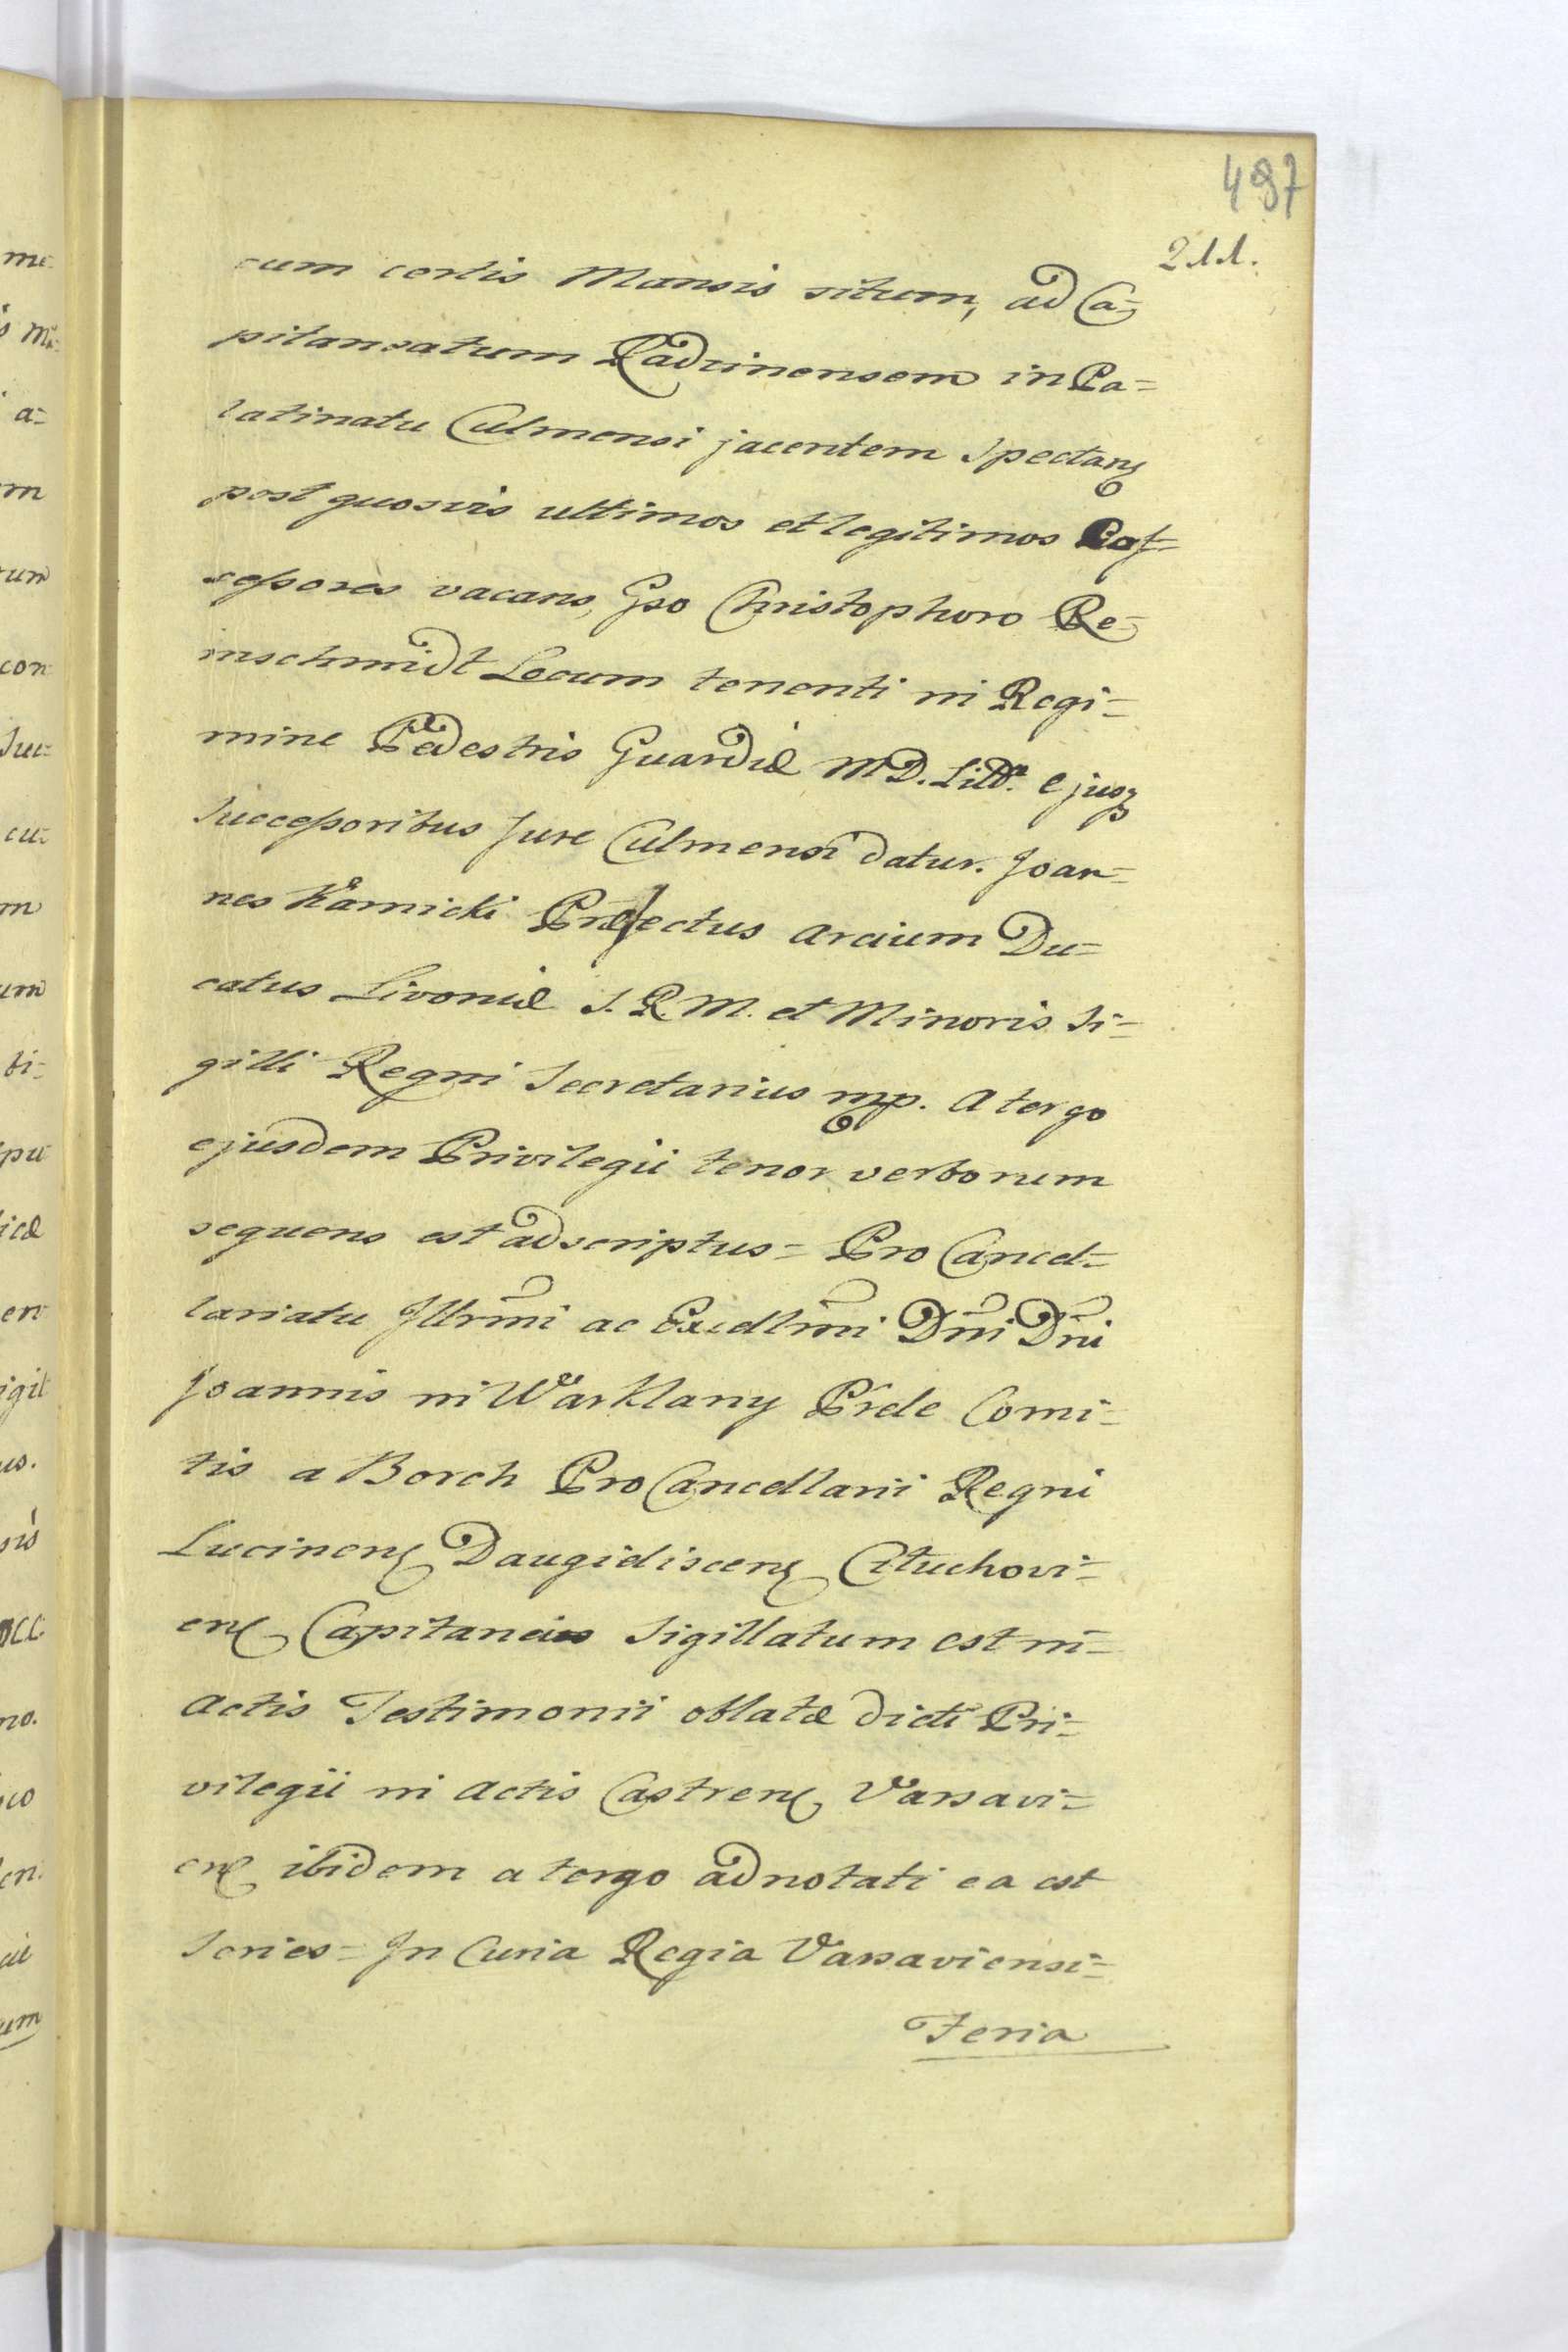 497
211.
cum certis Mansis situm, ad Ca=
pitaneatum Radzinensem in Pa=
latinatu Culmensi jacentem Spectanς
post quosvis ultimos et legitimos Pos=
sessores vacans, Gso Christophoro Re=
inschmidt Locum tenenti in Regi=
mine Pedestris Guardiæ M D. Litt. ejusꝫ
Successoribus Jure Culmensi datur. Joan=
nes Karnicki Præfectus arcium Du=
catus Livoniæ S. R. M. et Minoris Si=
gilli Regni Secretarius mp. A tergo
ejusdem Privilegii tenor verborum
sequens est adscriptus = Pro Cancel=
lariatu Illrmi ac Excellmi Dni Dni
Joannis in Warklany Prele Comi=
tis a Borch Pro Cancellarii Regni
Lucinenς Daugielisceς
enς Capitanei Sigillatum est in=
Actis Testimonii oblatæ dicti Pri=
vilegii in Actis Castrenς Varsavi=
enς ibidem a tergo adnotati ea est
Series = In Curia Regia Varsaviensi=
Feria
me
a=
m
um
con
Suc=
cu=
m
um
ti=
pu
icæ
en
igil
us.
sis
no.
co
en.
um